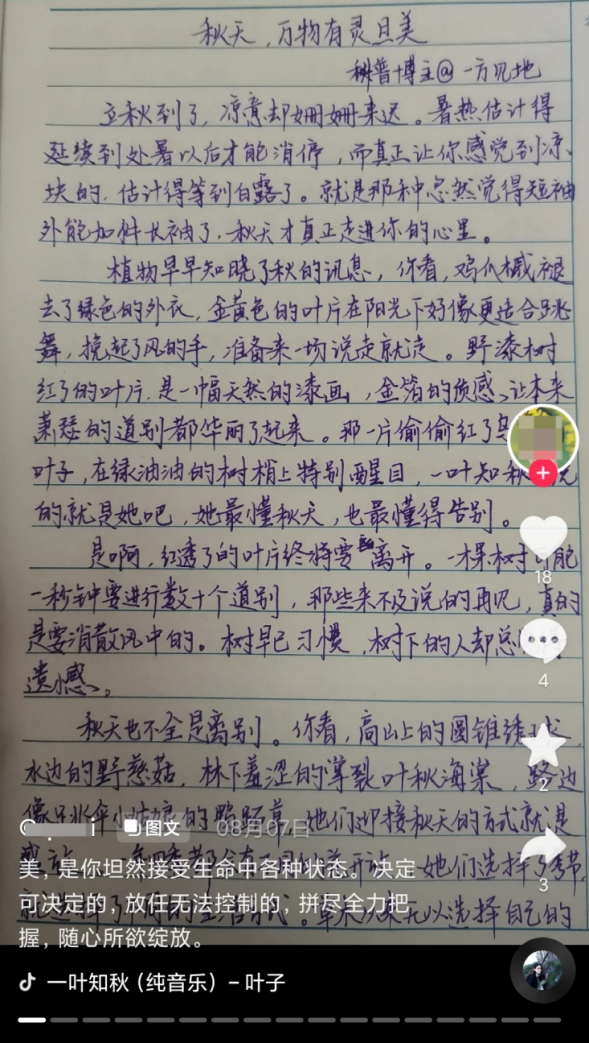 秋天，万物有灵且美
科普博主@一方见地
立秋到了，凉意却姗姗来迟。暑热估计得
延续到处暑以后才能消停，而真正让你感觉到凉
块的，估计得等到白露了。就是那种忽然觉得短袖
外能加件长袖了，秋天才真正走进你的心里。
植物早早知晓了秋的讯息，你看，鸡爪槭褪
去了绿色的外衣，金黄色的叶片在阳光下好像更适合跳
舞，挽起了风的手，准备来一场说走就走。野漆树
红了的叶片，是一幅天然的漆画，金箔的质感，让本来
萧瑟的道别都华丽了起来。那一片偷偷红了
叶子，在绿油油的树梢上特别醒目，一叶知秋
的就是她吧，她最懂秋天，也最懂得告别。
是啊，红透了的叶片终将要离开。一棵树可能
一秒钟要进行数十个道别，那些来不及说的再见，真的
是要消散风中的。树早已习惯，树下的人却总
遗憾。
秋天也不全是离别。你看，高山上的圆锥绣球，
水边的野慈菇，林下羞涩的薄裂叶秋海棠，路边
像只小姑娘的鸭跖草，她们迎接秋天的方式就是
她们选择了季节，
草木从来无以选择自己的
18
4
2
3
图文
08月07日
美，是你坦然接受生命中各种状态。决定
可决定的，放任无法控制的，拼尽全力把
握，随心所欲绽放。
一叶知秋（纯音乐）– 叶子